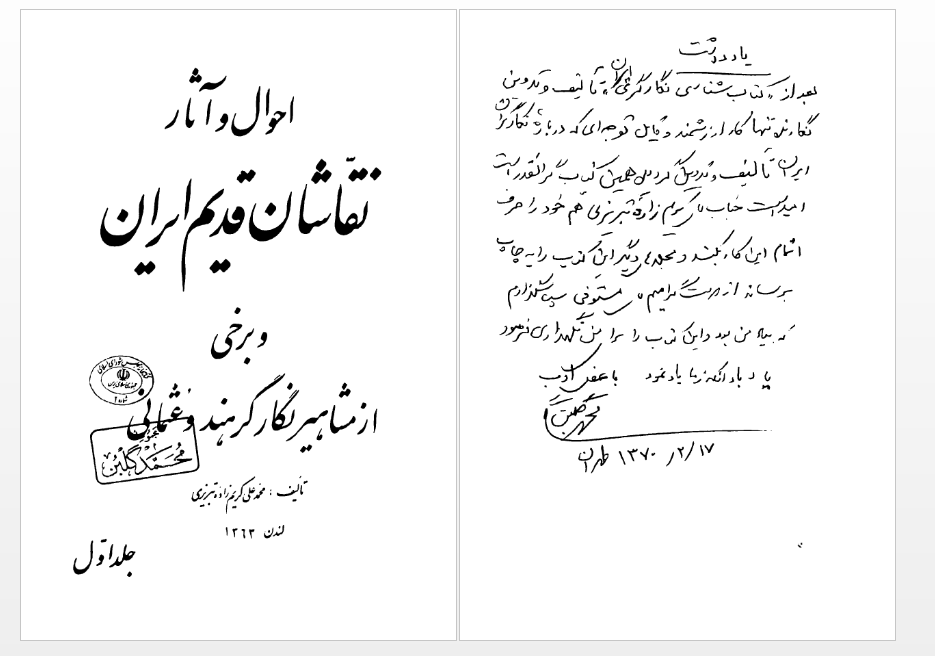 احوال و آثار
نقّاشان قدیم ایران
و برخی
از مشاهیر نگارگر هند و عثمانی
محمد گلبن
تألیف : محمدعلی کریم‌زاده تبریزی
لندن ۱۳۶۳
جلد اوّل
یادداشت
بعد از «کتاب‌شناسی نگارگری ایران» تألیف و تدوین
نگارنده تنها کار ارزشمند و قابل توجه‌ای که درباره نگارگران
ایران تألیف و تدوین گردیده همین کتاب گرانقدر است
امید است جناب کریم‌زاده تبریزی هم خود را صرف
اتمام این کار بکند و مجلدهای دیگر این کتاب را به چاپ
برساند از مستوفی سپاسگذارم
که بیاد من بود و این کتاب را برای من نگهداری فرمود
یاد باد آنکه ز ما یاد نمود با
محمد گلبن
۱۷/۲/۱۳۷۰ طهران